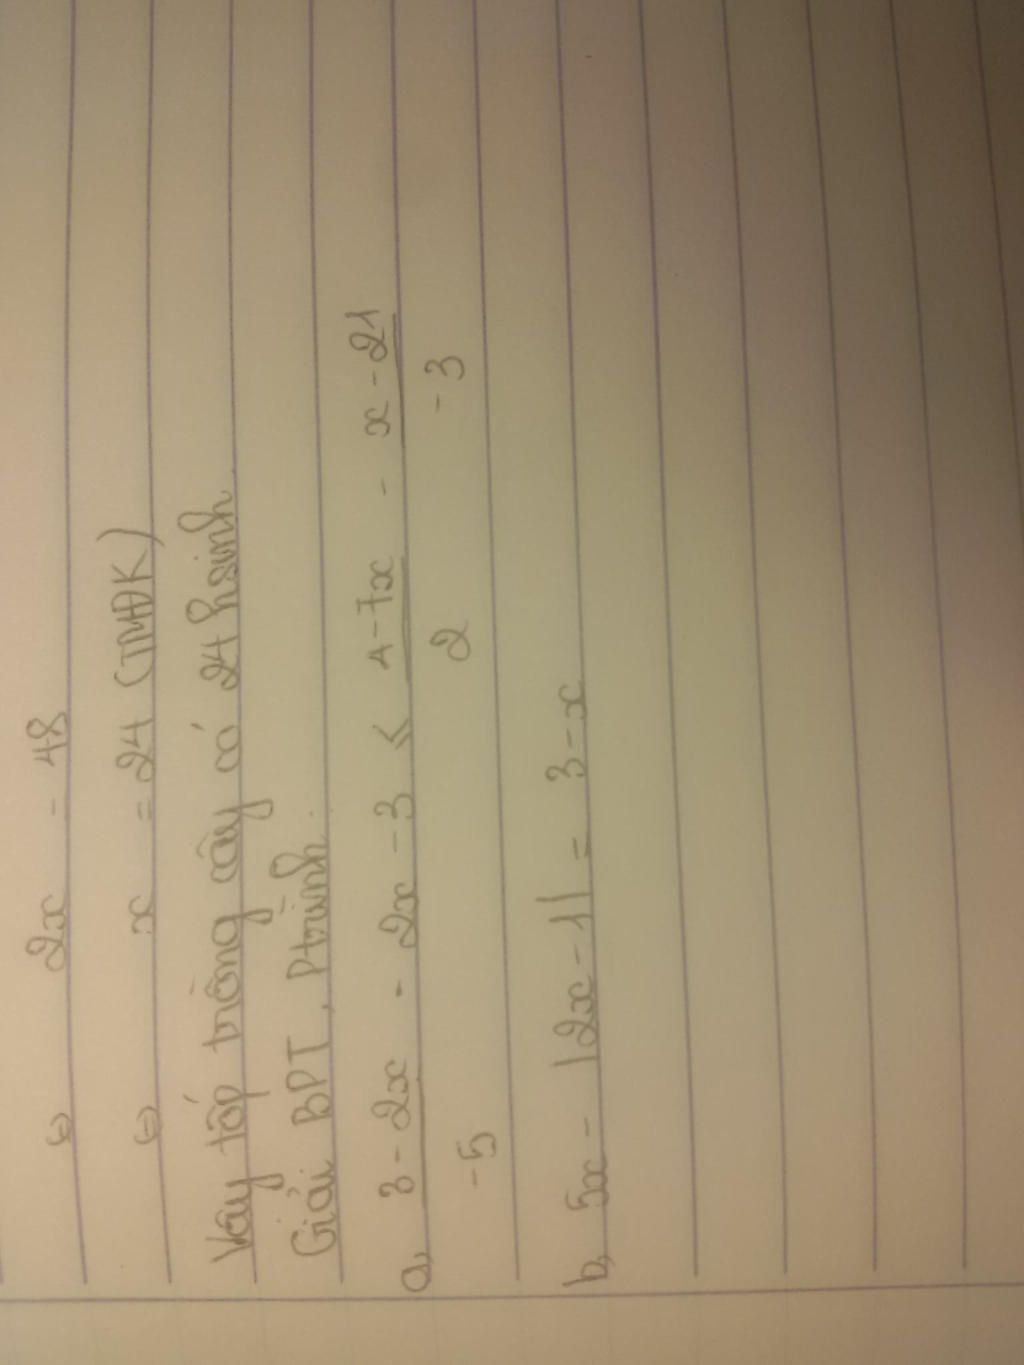 ⇔ 2x = 48
⇔ x = 24 (TMĐK)
Vậy tốp trồng cây có 24 hsinh.
Giải BPT, Ptrình.
a, 3 - 2x / -5 - 2x - 3 < 1 - 7x / 2 - x - 21 / -3
b, 5x - |2x - 1| = 3 - x